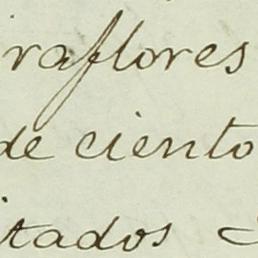 raflores
de ciento
itados